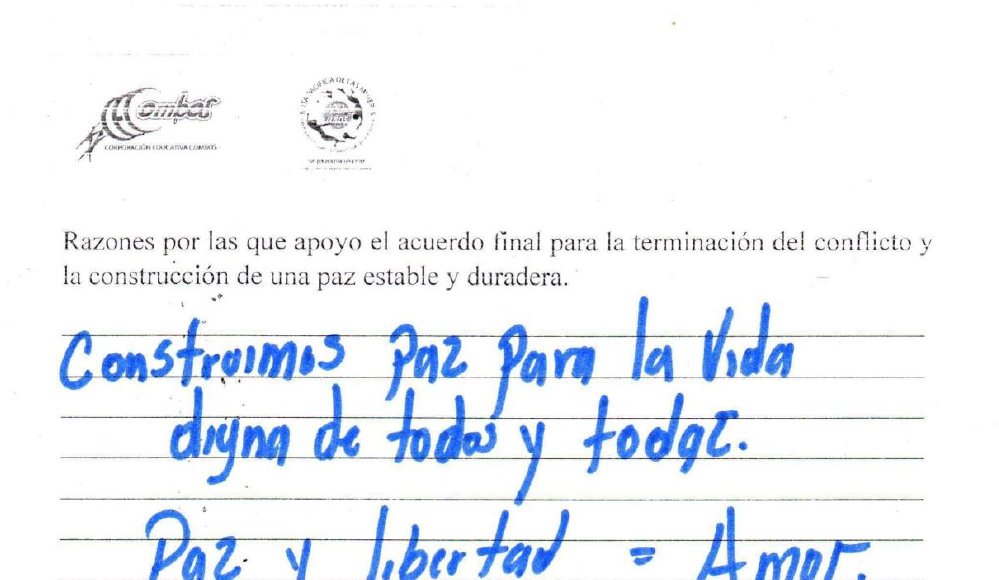 Combos
CORPORACIÓN EDUCATIVA COMBOS
Razones por las que apoyo el acuerdo final para la terminación del conflicto y
la construcción de una paz estable y duradera.
Construimos Paz para la Vida
digna de todos y todas.
Paz y libertad = Amor.